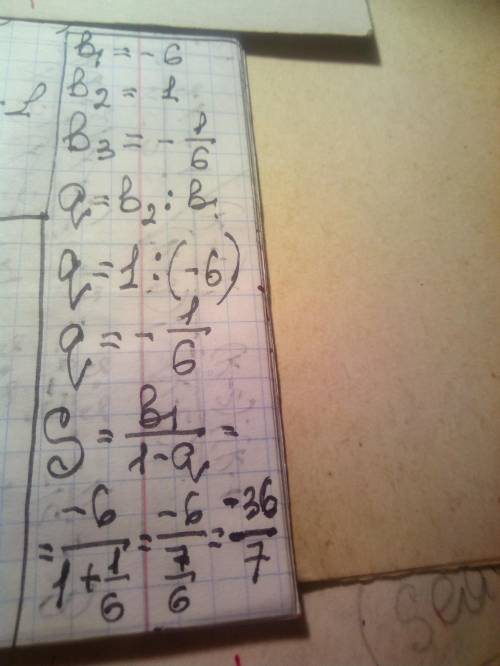 b₁ = -6
b₂ = 1
b₃ = - 1/6
q = b₂ : b₁
q = 1 : (-6)
q = - 1/6
S = b₁/(1-q) =
= -6/(1+1/6) = -6/(7/6) = -36/7